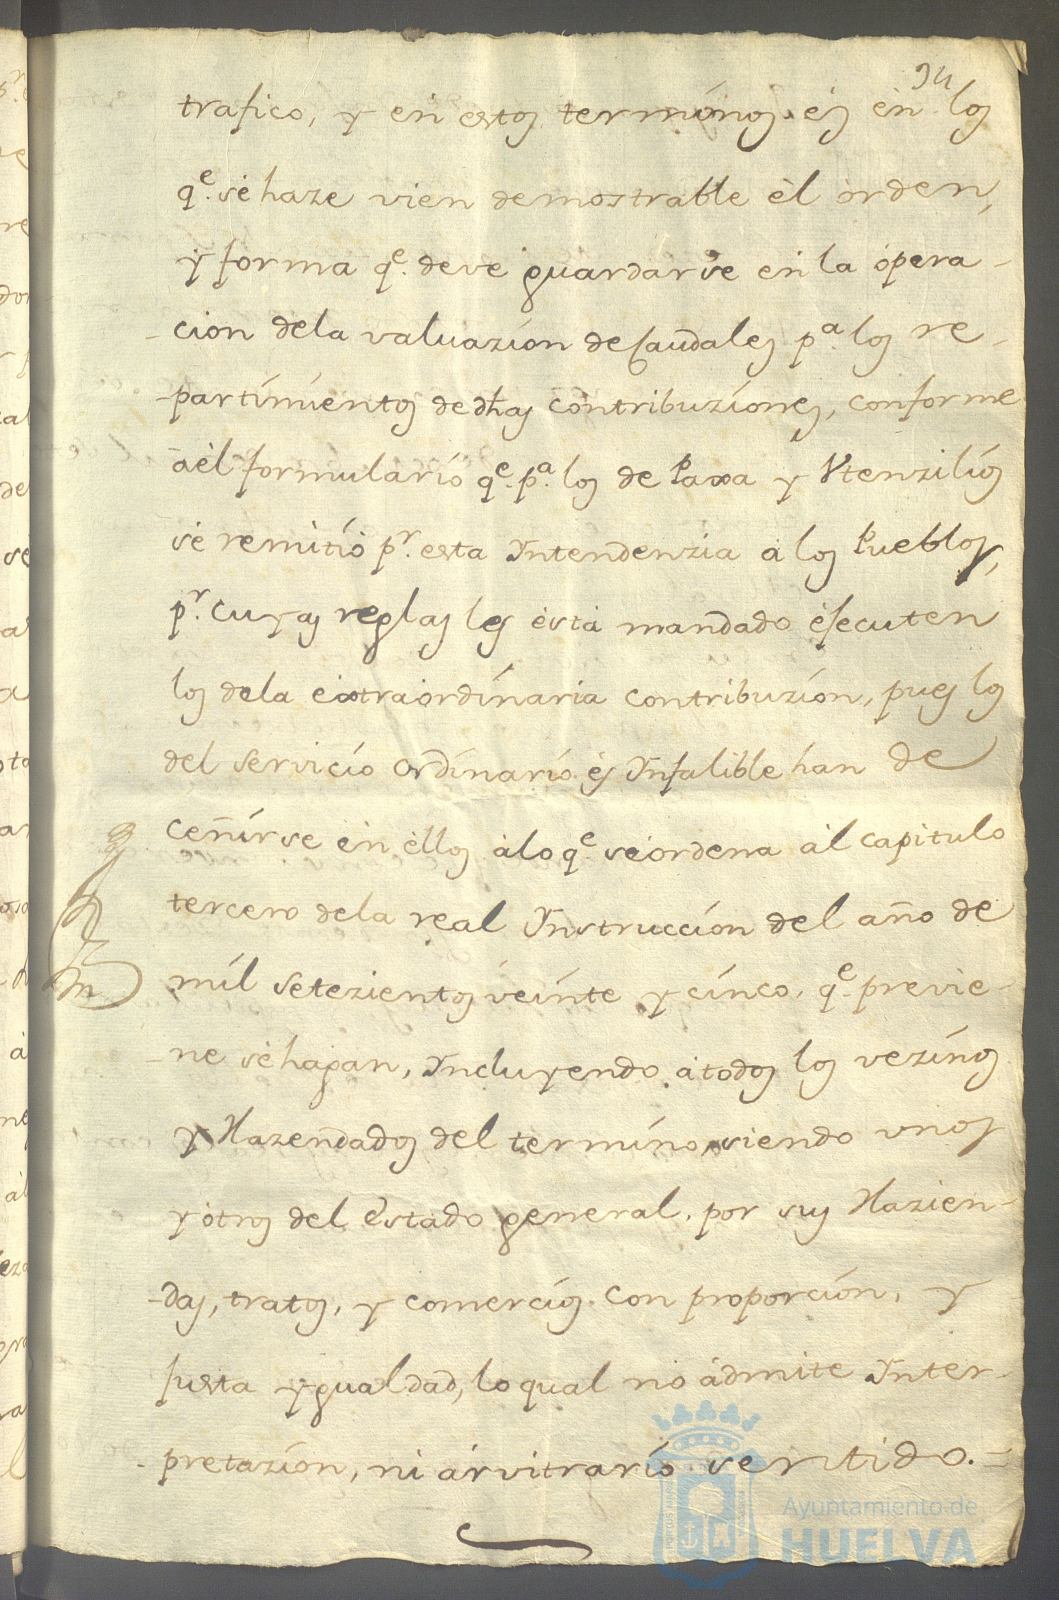 94
trafico, y en estos terminos. és èn los
q.e sè haze vien demostrable èl orden,
y forma q.e deve guardarse en la opera-
-cion dela valuazion de Caudales p.a los re-
-partimientos de dhas contribuziones, conforme
aèl formulario q.e p.a los de Paxa y Vtenzilios
sè remitiò p.r esta Yntendenzia à los Pueblos,
p.r cuyas reglas les èsta mandado èjecuten
los dela èxtraordinaria contribuzion, pues los
del servicio ordinario. és Ynfalible han de
ceñirse èn èllos àlo q.e sèordena àl capitulo
tercero dela real Ynstrucción del año de
mil setezientos veinte y cinco. q.e previe-
-ne sèhagan, Yncluyendo. àtodos los vezinos
y Hazendados del termino, siendo vnos
y òtros del Estado general. por sus Hazien-
-das, tratos, y comercios. con proporción, y
justa ygualdad, lo qual no àdmite Ynter-
-pretazion, ni àrvitrario sentido.=
Ayuntamiento de
HUELVA